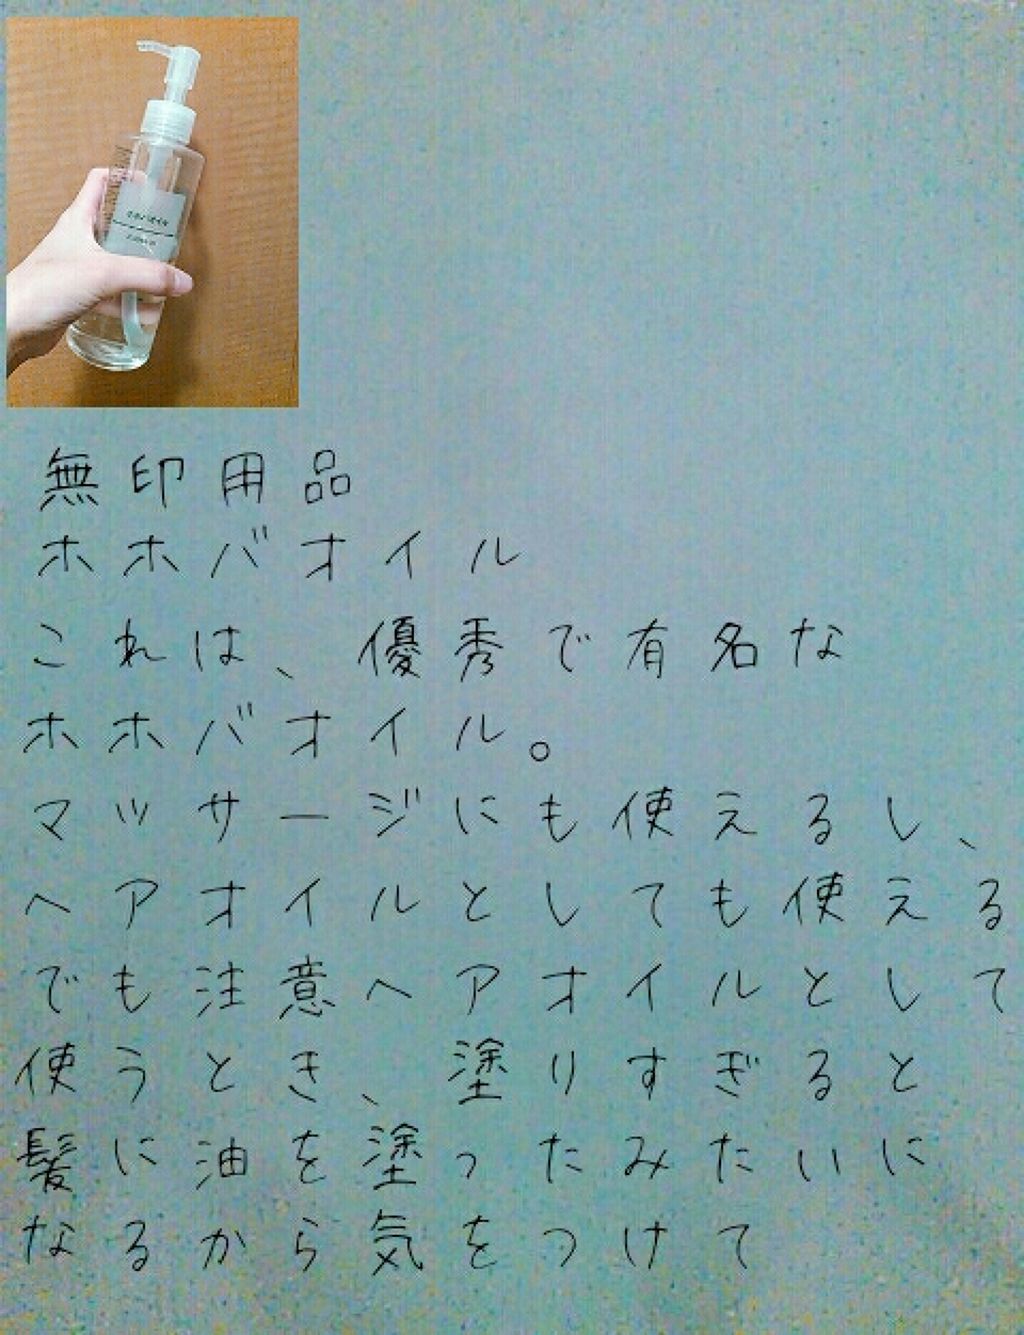 ホホバオイル
無印用品
ホホバオイル
これは、優秀で有名な
ホホバオイル。
マッサージにも使えるし、
ヘアオイルとしても使える
でも注意ヘアオイルとして
使うとき、塗りすぎると
髪に油を塗ったみたいに
なるから気をつけて